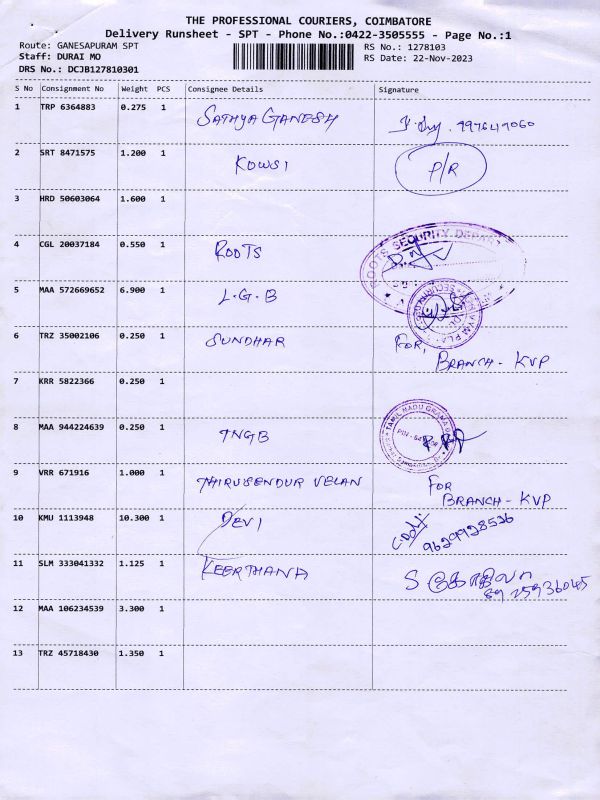 THE PROFESSIONAL COURIERS, COIMBATORE
Delivery Runsheet - SPT - Phone No.:0422-3505555 - Page No.:1
Route: GANESAPURAM SPT
RS No.: 1278103
Staff: DURAI MO
RS Date: 22-Nov-2023
DRS No.: DCJB127810301
S No Consignment No Weight PCS Consignee Details Signature
1 TRP 6364883 0.275 1 SATHYA GANESH
2 SRT 8471575 1.200 1 KOWSI P/R
3 HRD 50603064 1.600 1
4 CGL 20037184 0.550 1 ROOTS
ROOTS SECURITY DEPART
5 MAA 572669652 6.900 1 L.G.B
6 TRZ 35002106 0.250 1 SUNDHAR FOR,
BRANCH - KVP
7 KRR 5822366 0.250 1
8 MAA 944224639 0.250 1 TNGB
TAMIL NADU GRAMA
9 VRR 671916 1.000 1 THIRUSENDUR VELAN FOR
BRANCH - KVP
10 KMU 1113948 10.300 1 DEVI
9629928526
11 SLM 333041332 1.125 1 KEERTHANA S
12 MAA 106234539 3.300 1
13 TRZ 45718430 1.350 1